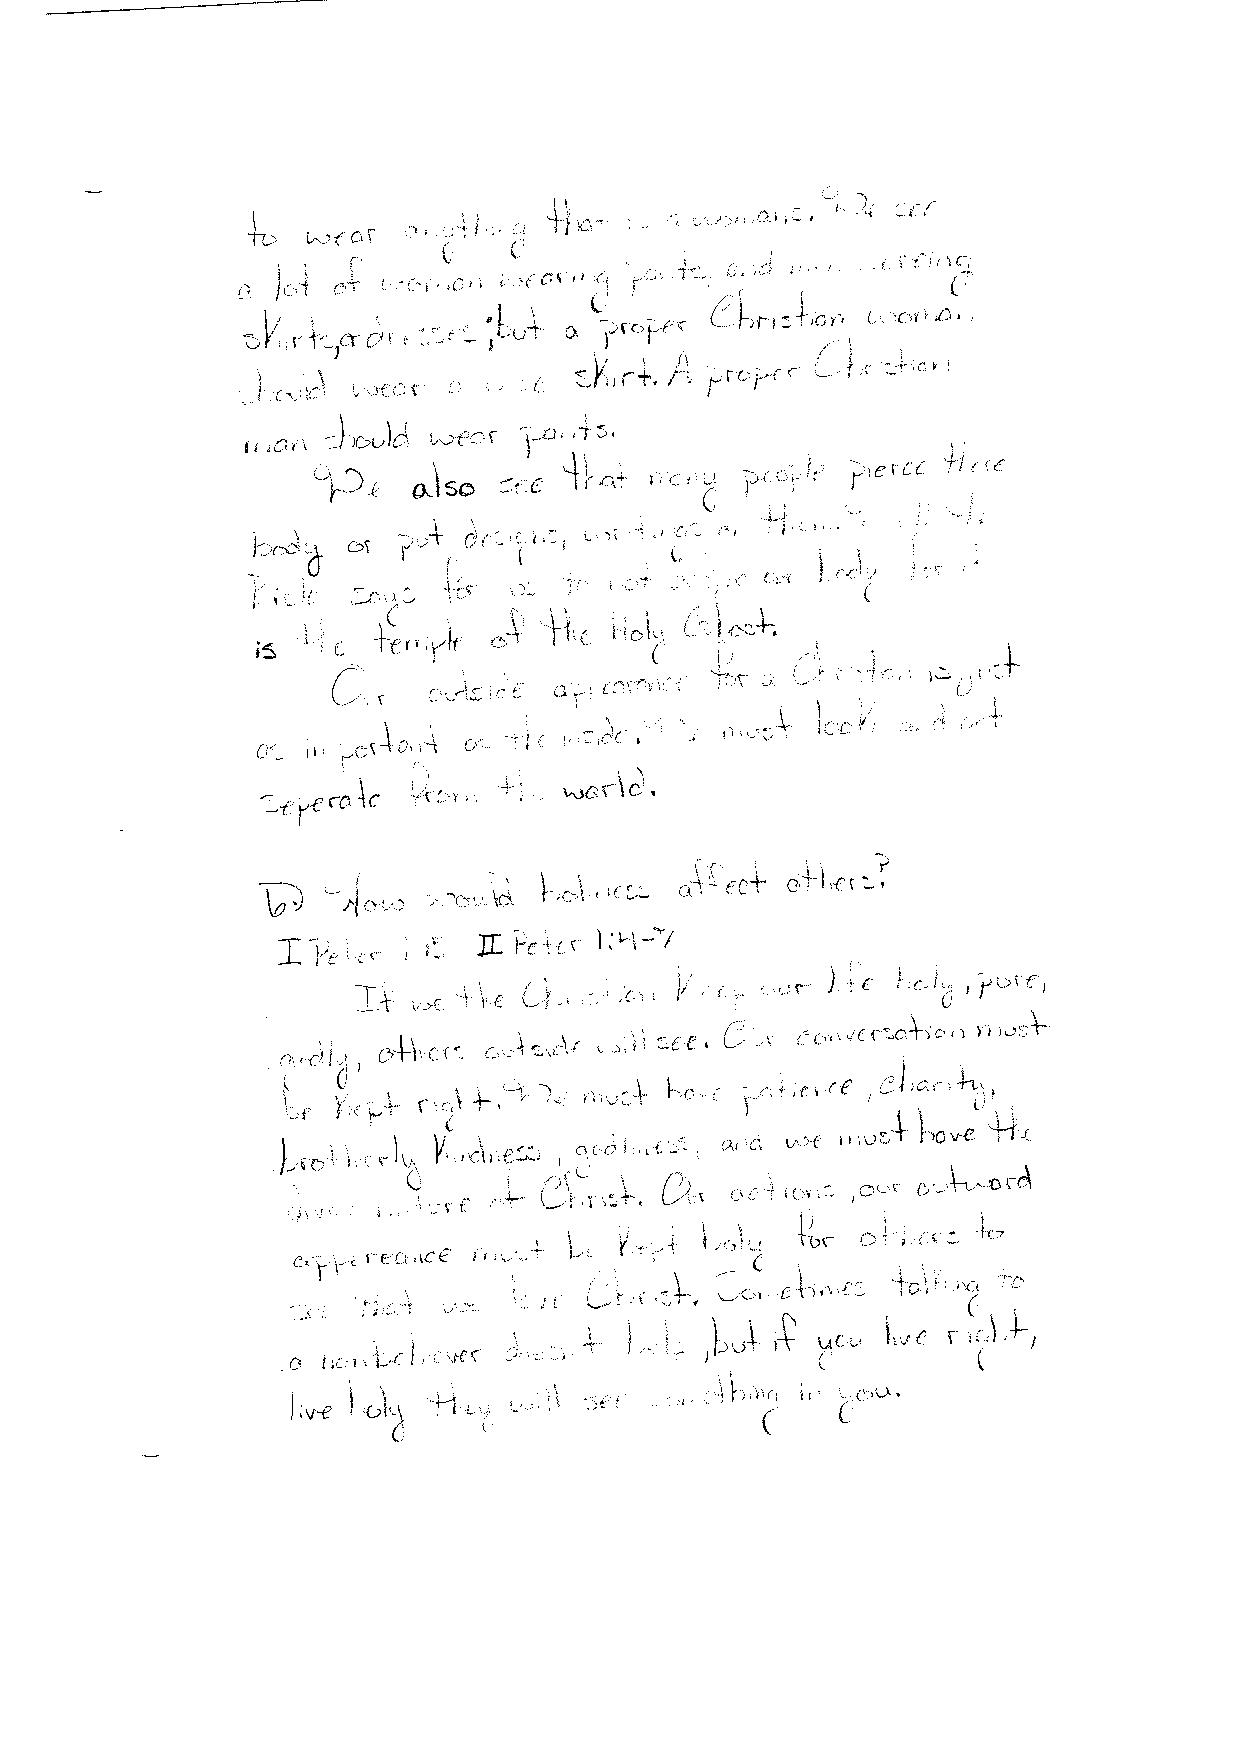 to wear anything that is a womans. We see
a lot of woman wearing pants, and men wearing
skirts, or dresses; but a proper Christian woman
should wear a skirt. A proper Christian
man should wear pants.
We also see that many people pierce there
body or put designs, writings on them.
Bible says for us to not our body for it
is the temple of the Holy Ghost.
Our outside apperance for a Christian is just
as important as the inside. We must look and act
seperate from the world.
B) How would holiness affect others?
I Peter 1:15 II Peter 1:4-7
If we the Christian Keep our life holy, pure,
godly, others outside will see. Our conversation must
be Kept right. We must have patience, charity,
brotherly Kindness, godliness, and we must have the
divine nature of Christ. Our actions, our outword
appereance must be Kept holy for others to
see that we Christ. Sometimes talking to
a nonbeliever doesn't help, but if you live right,
live holy they will see something in you.